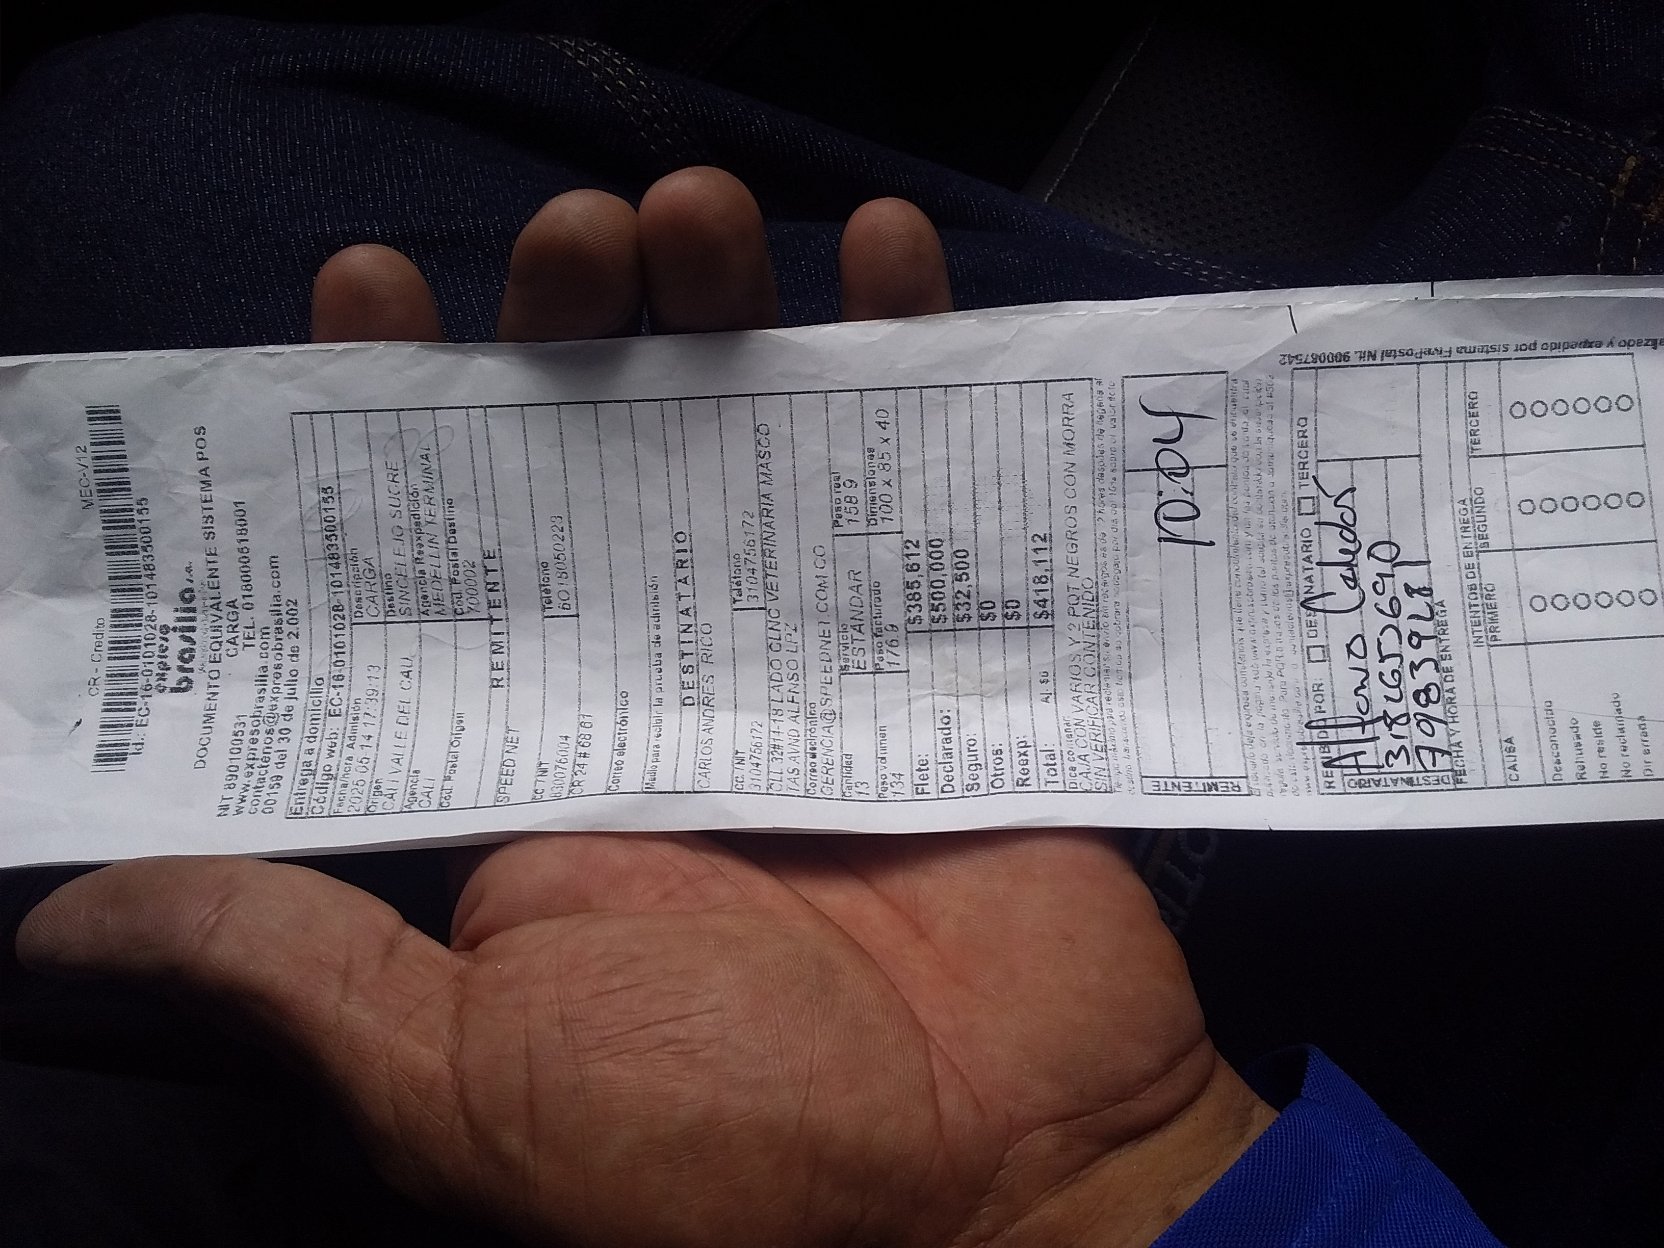 CR - Credito MEC-V12
Id.: EC-16-0101028-1014835001​55
expreso
brasilia s.a.
DOCUMENTO EQUIVALENTE SISTEMA POS
CARGA
NIT 890100531 TEL. 018000518001
www.expresobrasilia.com
contactenos@expresobrasilia.com
00159 del 30 de julio de 2.002
Entrega a domicilio
Código web: EC-16-0101028-101483500155
Fecha/hora Admisión Descripción
2025-05-14 17:39:13 CARGA
Origen Destino
CALI VALLE DEL CAU SINCELEJO SUCRE
Agencia Agencia Reexpedición
CALI MEDELLIN TERMINAL
Cód. Postal Origen Cód. Postal Destino
700002
REMITENTE
SPEED NET
CC / NIT Teléfono
830076004 6018050223
CR 24 # 6B 81
Correo electrónico
Medio para recibir la prueba de admisión
DESTINATARIO
CARLOS ANDRES RICO
CC / NIT Teléfono
3104756172 3104756172
CLL 32#14-18 LADO CLNC VETERINARIA MASCO
TAS AVND ALFENSO LPZ
Correo electrónico
GERENCIA@SPEEDNET.COM.CO
Cantidad Servicio Peso real
13 ESTANDAR 158.9
Peso volumen Peso facturado Dimensiones
134 176.9 100 x 85 x 40
Flete: $385,612
Declarado: $500,000
Seguro: $32,500
Otros: $0
Reexp: $0
Total: Aj. $0 $418,112
Dice contener:
CAJA CON VARIOS Y 2 POT NEGROS CON MORRA
SIN VERIFICAR CONTENIDO
REMITENTE
10:04
RECIBIDO POR: DESTINATARIO TERCERO
3182653690
79839481
FECHA Y HORA DE ENTREGA
INTENTOS DE ENTREGA
CAUSA PRIMERO SEGUNDO TERCERO
Desconocido
Rehusado
No reside
No reclamado
Dir errada
alizado y expedido por sistema FivePostal Nit. 900087542